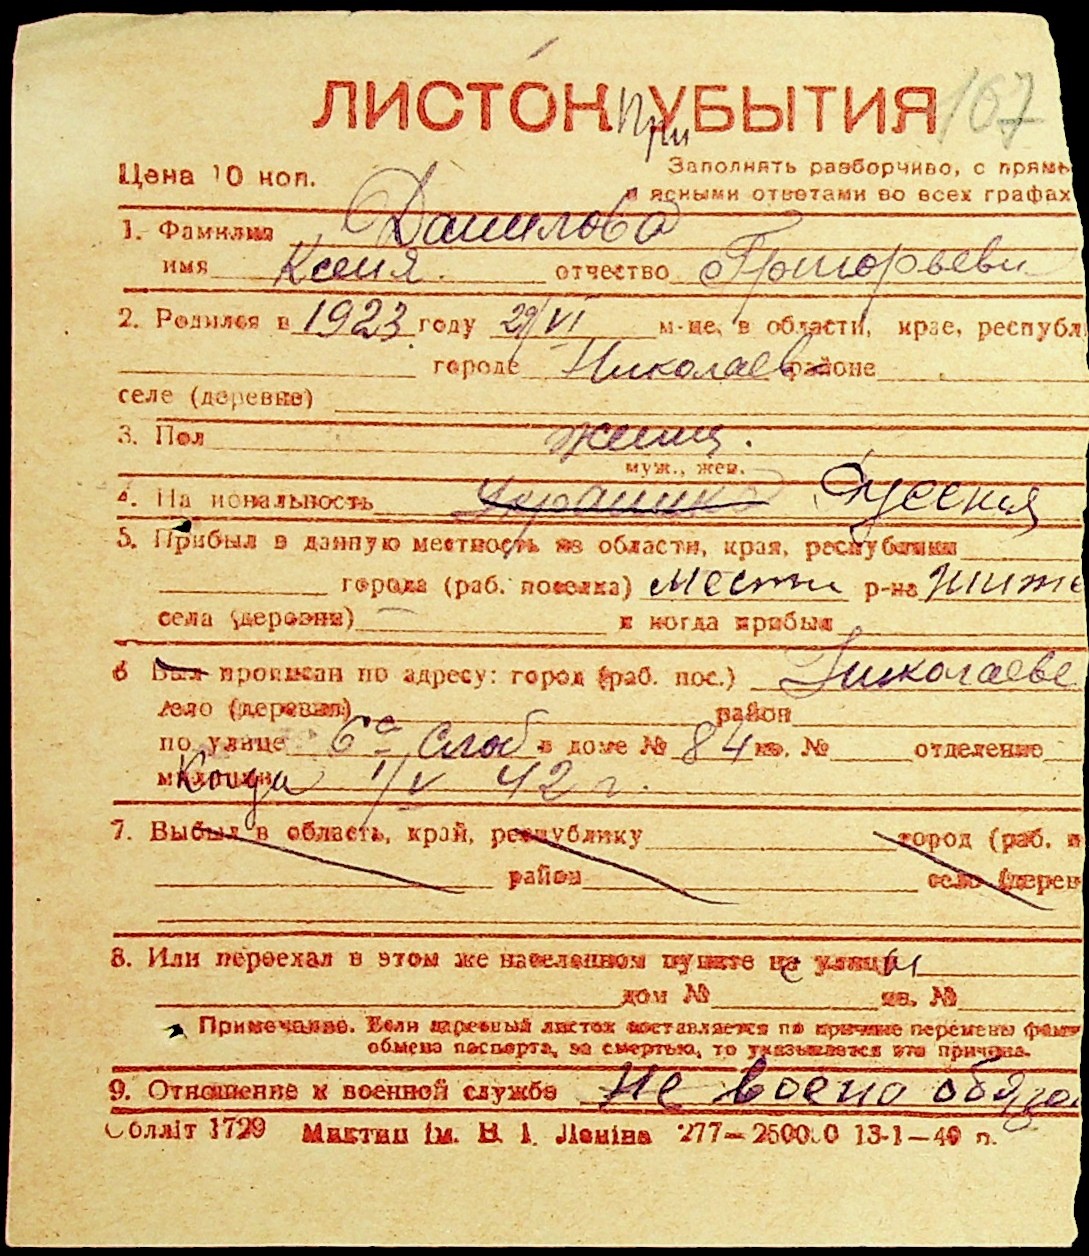 ЛИСТОК УБЫТИЯ
При
167
Цена 10 коп.
Заполнять разборчиво, с прямы
и ясными ответами во всех графах
1. Фамилия Данилова
имя Ксеня отчество Григорьевн
2. Родился в 1923 году 29/VI м-це, в области, крае, республ
городе Николаев районе
селе (деревне)
3. Пол женщ.
муж., жен.
4. На иональность Украинка Русская
5. Прибыл в данную местность из области, края, республики
города (раб. поселка) местн р-на Жите
села (деревни) и когда прибыл
6 Был прописан по адресу: город (раб. пос.) Николаеве
село (деревня) район
по улице 6я слоб в доме № 84 кв. № отделение
милиции Когда 1/V 42 г.
7. Выбыл в область, край, республику город (раб. п
район село (дерев
8. Или переехал в этом же населенном пункте на улицу
с
дом № кв. №
Примечание. Если адресный листок составляется по причине перемены фами
обмена паспорта, за смертью, то указывается эта причина.
9. Отношение к военной службе не воено обязан
Облліт 1729 Миктип ім. В. І. Леніна 277—250000 13-1—40 п.